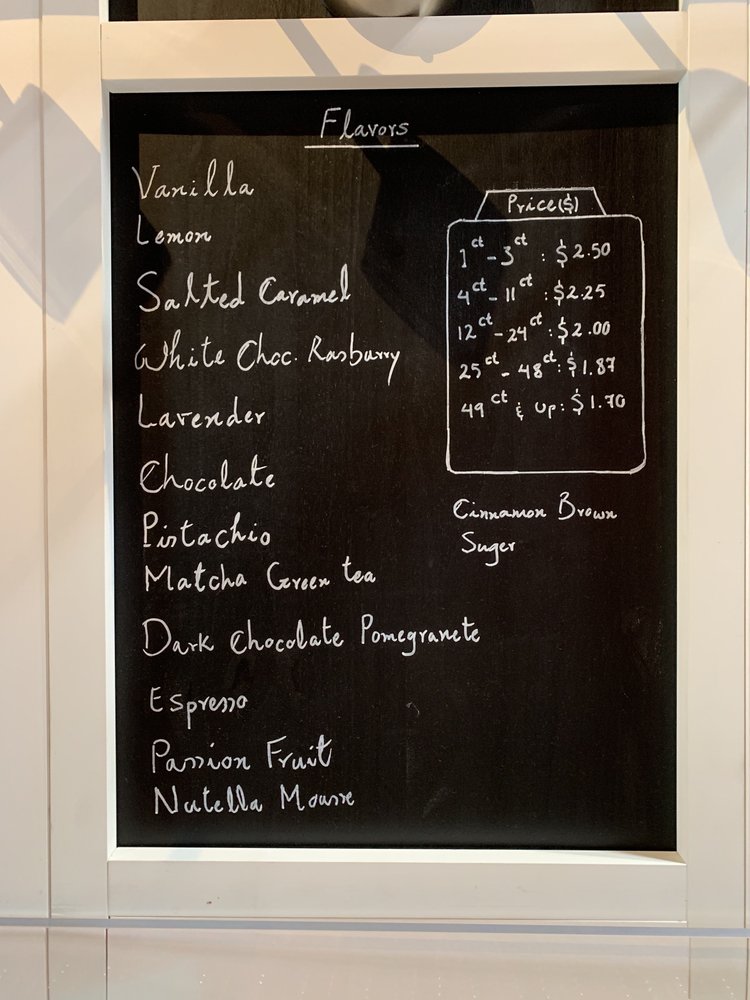 Flavors
Vanilla
Lemon
Salted Caramel
White Choc. Rasburry
Lavender
Chocolate
Pistachio
Matcha Green tea
Dark Chocolate Pomegranete
Espresso
Passion Fruit
Nutella Mousse
Price($)
1ct - 3ct : $2.50
4ct - 11ct : $2.25
12ct - 24ct : $2.00
25ct - 48ct : $1.87
49ct & up : $1.70
Cinnamon Brown
Suger